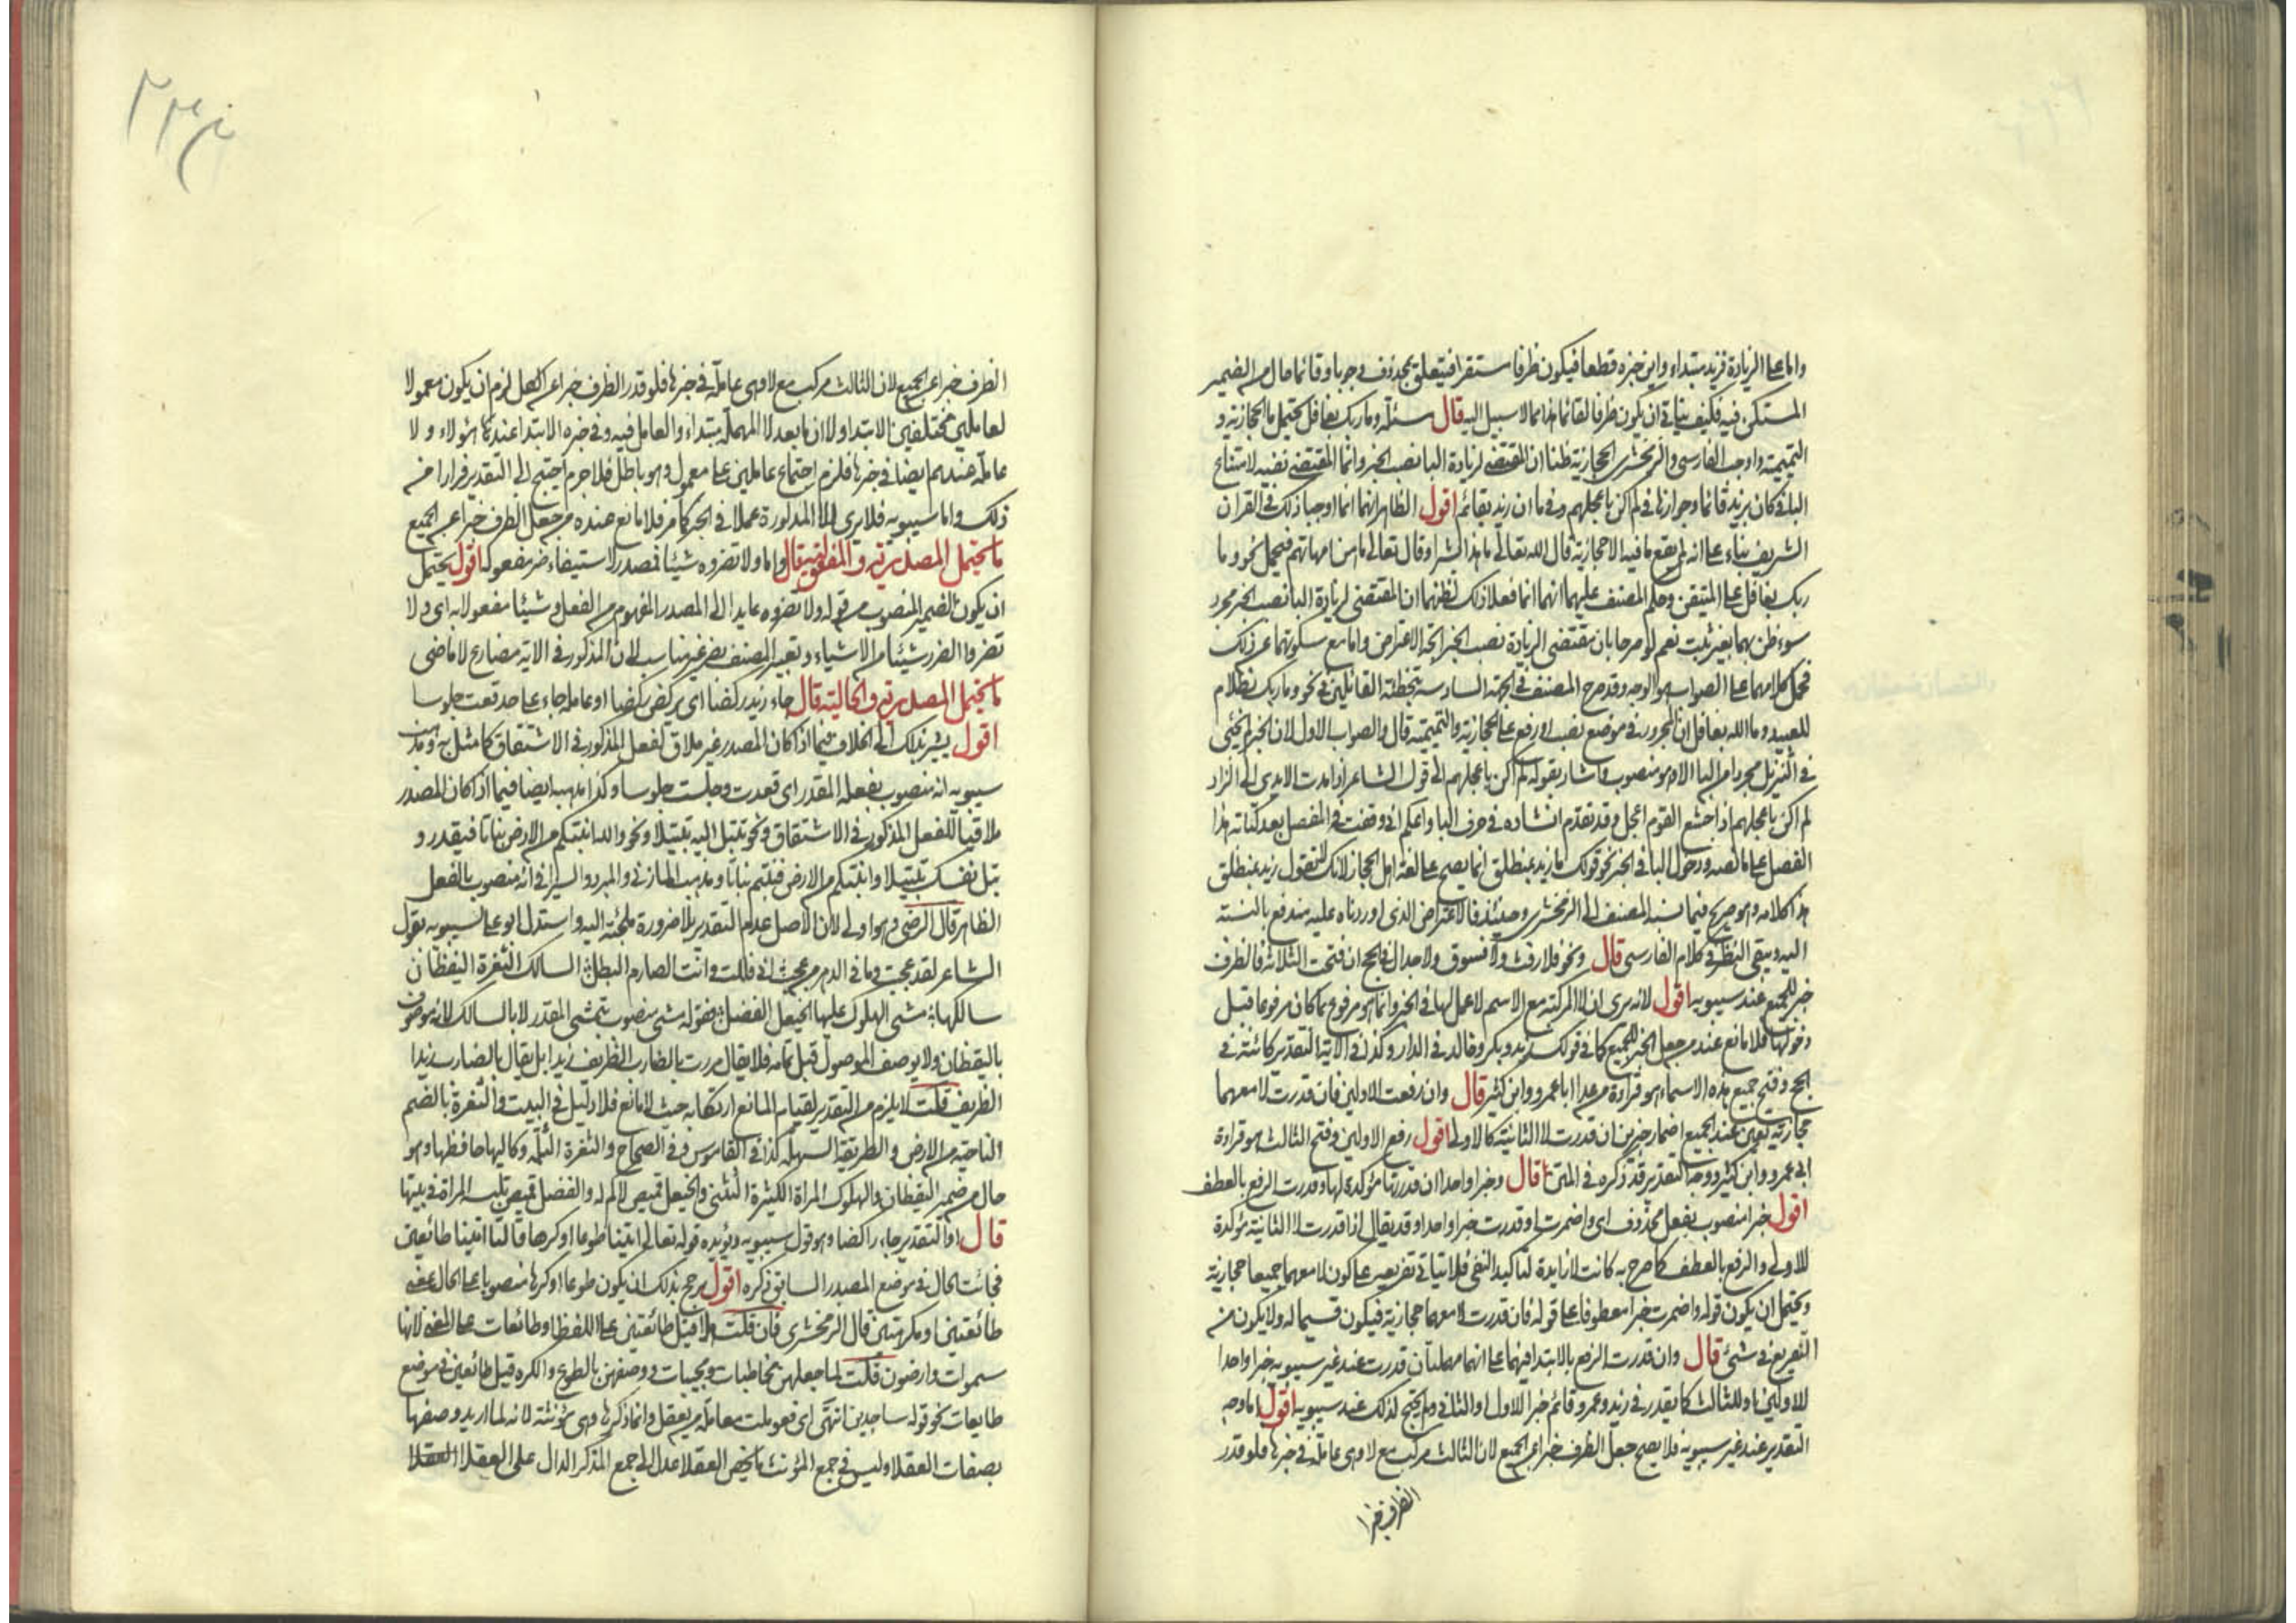 واما على الزيادة فزيد مبتداء واين خبره قطعا فيكون ظرفا مستقرا فيتعلق بمحذوف وجوبا وقائما حال من الضمير
المستكن فيه فكيف يتاتى ان يكون ظرفا لقائما هذا مما لا سبيل اليه قال مسئلة وما ربك بغافل يحتمل ما الحجازية و
التميمية واوجب الفارسى والزمخشرى الحجازية ظنا ان المقتضى لزيادة البا نصب الخبر وانما المقتضى نفيه لامتناع
البا فى كان زيد قائما وجوازها فى لم اكن باعجلهم وفى ما ان زيد بقائم اقول الظاهر انهما انما اوجبا ذلك فى القران
الشريف بناء على انه لم يقع ما فيه الا حجازية قال الله تعالى ما هذا بشرا وقال تعالى ما هن امهاتهم فيحمل نحو وما
ربك بغافل على المتيقن وحكم المصنف عليهما انهما انما فعلا ذلك لظنهما ان المقتضى لزيادة البا نصب الخبر مجرد
سوء ظن بهما بغير ثبت نعم لو صرحا بان مقتضى الزيادة نصب الخبر اتجه الاعتراض واما مع سكوتهما عن ذلك
فحمل كلامهما على الصواب هو الوجه وقد صرح المصنف فى الجهة السادسة بتخطئة القائلين فى نحو وما ربك بظلام
للعبيد وما الله بغافل ان المجرور فى موضع نصب او رفع على الحجازية والتميمية قال والصواب الاول لان الخبر لم يجئ
فى التنزيل مجردا من البا الا وهو منصوب واشار بقوله لم اكن باعجلهم الى قول الشاعر اذا مدت الايدى الى الزاد
لم اكن باعجلهم اذ اجشع القوم اعجل وقد تقدم انشاده فى حرف البا واعلم انى وقفت فى المفصل بعد كتابة هذا
الفصل على ما نصه ودخول البا فى الخبر نحو قولك ما زيد بمنطلق انما يصح على لغة اهل الحجاز لانك لا تقول زيد بمنطلق
هذا كلامه وهو صريح فيما نسبه المصنف الى الزمخشرى وحينئذ فالاعتراض الذى اوردناه عليه مندفع بالنسبة
اليه ويبقى النظر فى كلام الفارسى قال ونحو فلا رفث ولا فسوق ولا جدال فى الحج ان فتحت الثلاثة فالظرف
خبر للجميع عند سيبويه اقول لانه يرى ان لا المركبة مع الاسم لا عمل لها فى الخبر وانما هو مرفوع بما كان مرفوعا قبل
دخولها فلا مانع عنده من جعل الخبر للجميع كما فى قولك زيد وبكر وخالد فى الدار وكذا فى الاية التقدير كائنة فى
الحج وفتح جميع هذه الاسماء هو قراءة من عدا ابا عمرو وابن كثير قال وان رفعت الاولين فان قدرت لا معهما
حجازية تعين عند الجميع اضمار خبرين ان قدرت لا الثانية كالاولى اقول رفع الاولين وفتح الثالث هو قراءة
ابى عمرو وابن كثير ووجه التقدير قد ذكره فى المتن قال وخبرا واحدا ان قدرتها مؤكدة لها وقدرت الرفع بالعطف
اقول خبرا منصوب بفعل محذوف اى واضمرت او قدرت خبرا واحدا وقد يقال اذا قدرت لا الثانية مؤكدة
للاولى والرفع بالعطف كما صرح به كانت لا زايدة لتاكيد النفى فلا يتاتى تفريعه على كون لا معهما جميعا حجازية
ويحتمل ان يكون قوله واضمرت خبرا معطوفا على قوله فان قدرت لا معهما حجازية فيكون قسيما له ولا يكون من
التفريع فى شئ قال وان قدرت الرفع بالابتدا فيهما على انهما مهملتان قدرت عند غير سيبويه خبرا واحدا
للاولين او للثالث كما يقدر فى زيد وعمرو قائم خبرا للاول او الثانى ولم يحتج لذلك عند سيبويه اقول اما وجه
التقدير عند غير سيبويه فلا يصح جعل الظرف خبرا عن الجميع لان الثالث مركب مع لا وهى عاملة فى خبرها فلو قدر
الظرف خبرا
الظرف خبرا عن الجميع لان الثالث مركب مع لا وهى عاملة فى خبرها فلو قدر الظرف خبرا عن الكل لزم ان يكون معمولا
لعاملين مختلفين الابتدا ولا ان ما بعد لا المهملة مبتداء والعامل فيه وفى خبره الابتدا عند هؤلاء و لا
عاملة عندهم ايضا فى خبرها فلزم اجتماع عاملين على معمول وهو باطل فلا جرم احتيج الى التقدير فرارا من
ذلك واما سيبويه فلا يرى للا المذكورة عملا فى الخبر كما مر فلا مانع عنده من جعل الظرف خبرا عن الجميع
ما يحتمل المصدرية والمفعولية قال واما ولا تضروه شيئا فمصدر لاستيفاء ضر مفعوله اقول يحتمل
ان يكون الضمير المنصوب من قوله ولا تضروه عايدا الى المصدر المفهوم من الفعل وشيئا مفعولا به اى ولا
تضروا الضرر شيئا من الاشياء وتعبير المصنف بضر غير مناسب لان المذكور فى الاية مضارع لا ماضى
ما يحتمل المصدرية والحالية قال جاء زيد ركضا اى يركض ركضا او عامله جاء على حد قعدت جلوسا
اقول يشير بذلك الى الخلاف فيما اذا كان المصدر غير ملاق للفعل المذكور فى الاشتقاق كما مثل به ومذهب
سيبويه انه منصوب بفعله المقدر اى قعدت وجلست جلوسا وكذا مذهبه ايضا فيما اذا كان المصدر
ملاقيا للفعل المذكور فى الاشتقاق ونحو تبتل اليه تبتيلا ونحو والله انبتكم من الارض نباتا فيقدر و
بتل نفسك تبتيلا وانبتكم من الارض فنبتم نباتا ومذهب المازنى والمبرد والسيرافى انه منصوب بالفعل
الظاهر قال الرضى وهو اولى لان الاصل عدم التقدير بلا ضرورة ملجئة اليه واستدل ابو على لسيبويه بقول
الشاعر لقد عجبت وما فى الدهر من عجب انى قتلت وانت الصارم البطل السالك الثغرة اليقظان
سالكها مشى الهلوك عليها الخيعل الفضل فقوله مشى منصوب بتمشى المقدر لا بالسالك لانه موصوف
باليقظان ولا يوصف الموصول قبل تمامه فلا يقال مررت بالضارب الظريف زيدا بل يقال بالضارب زيدا
الظريف قلت لا يلزم من التقدير لقيام المانع ارتكابه حيث لا مانع فلا دليل فى البيت والثغرة بالضم
الناحية من الارض والطريقة السهلة كذا فى القاموس وفى الصحاح والثغرة الثلمة وكاليها حافظها وهو
حال من ضمير اليقظان والهلوك المراة الكثيرة التثنى والخيعل قميص لا كم له والفضل قميص تلبسه المراة فى بيتها
قال او التقدير جاء راكضا وهو قول سيبويه ويؤيده قوله تعالى ائتيا طوعا او كرها قالتا اتينا طائعين
فجائت الحال فى موضع المصدر السابق ذكره اقول يرجح بذلك ان يكون طوعا او كرها منصوبا على الحال بمعنى
طائعتين او مكرهتين قال الزمخشرى فان قلت هلا قيل طائعتين على اللفظ او طائعات على المعنى لانها
سموات وارضون قلت لما جعلهن مخاطبات ومجيبات ووصفهن بالطوع والكره قيل طائعين فى موضع
طايعات نحو قوله ساجدين انتهى اى فعوملت معاملة من يعقل وانما ذكرها وهى مؤنثة لانه لما اريد وصفها
بصفات العقلا وليس فى جمع المؤنث ما يخص العقلا عدل الى جمع المذكر الدال على العقلا